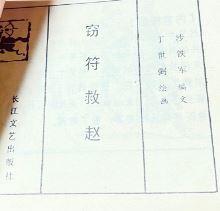 沙铁军编文
丁世弼绘画
窃符救赵
长江文艺出版社